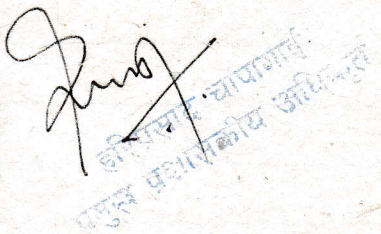 हरिप्रसाद चापागाई
प्रमुख प्रशासकीय अधिकृत